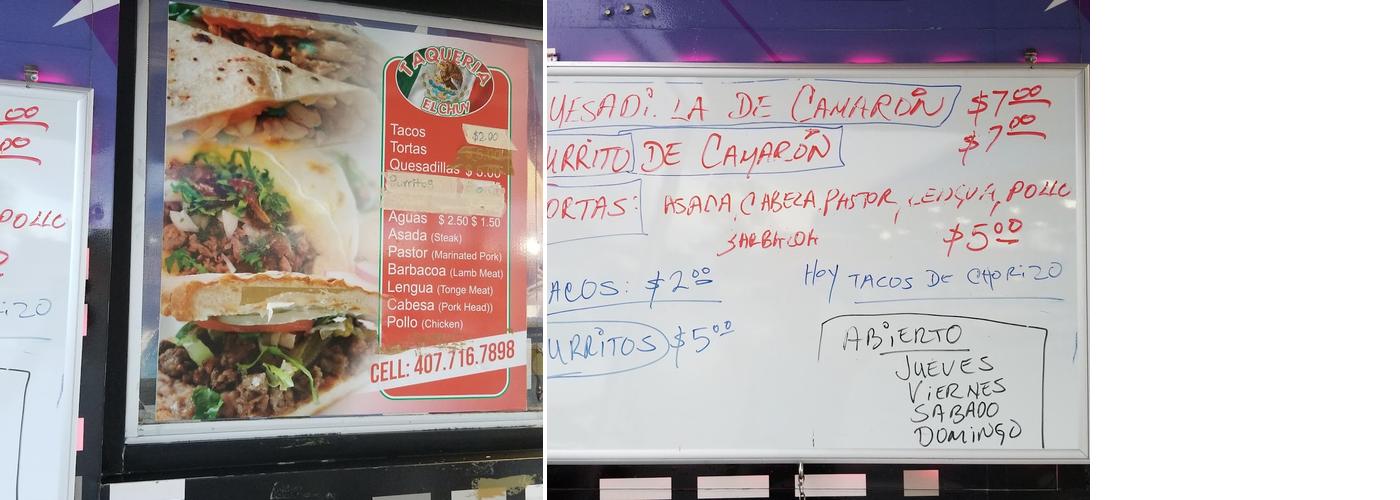 .00
.00
POLLO
IZO
TAQUERIA
EL CHUY
Tacos $2.00
Tortas
Quesadillas $ 5.00
Burritos
Aguas $ 2.50 $ 1.50
Asada (Steak)
Pastor (Marinated Pork)
Barbacoa (Lamb Meat)
Lengua (Tonge Meat)
Cabesa (Pork Head))
Pollo (Chicken)
CELL: 407.716.7898
UESADi. LA DE CAMARON $7.00
URRITO DE CAMARÓN $7.00
ORTAS: ASADA, CABEZA, PASTOR, LENGUA, POLLO
BARBACOA $5.00
ACOS: $2.00 HOY TACOS DE CHORIZO
URRITOS $5.00
ABIERTO
JUEVES
VIERNES
SABADO
DOMINGO